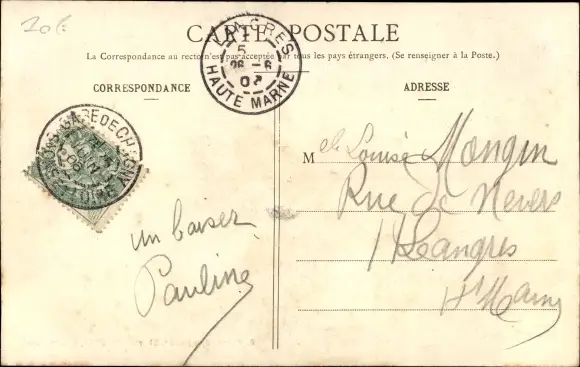 20€
CARTE POSTALE
La Correspondance au recto n'est pas acceptée par tous les pays étrangers. (Se renseigner à la Poste.)
LANGRES
5
26 - 6
07
HAUTE MARNE
CORRESPONDANCE
ADRESSE
GARE DE CHAGNY
Un baiser
Pauline
Melle Louise Mongin
Rue de Nevers
Langres
Hte Marne